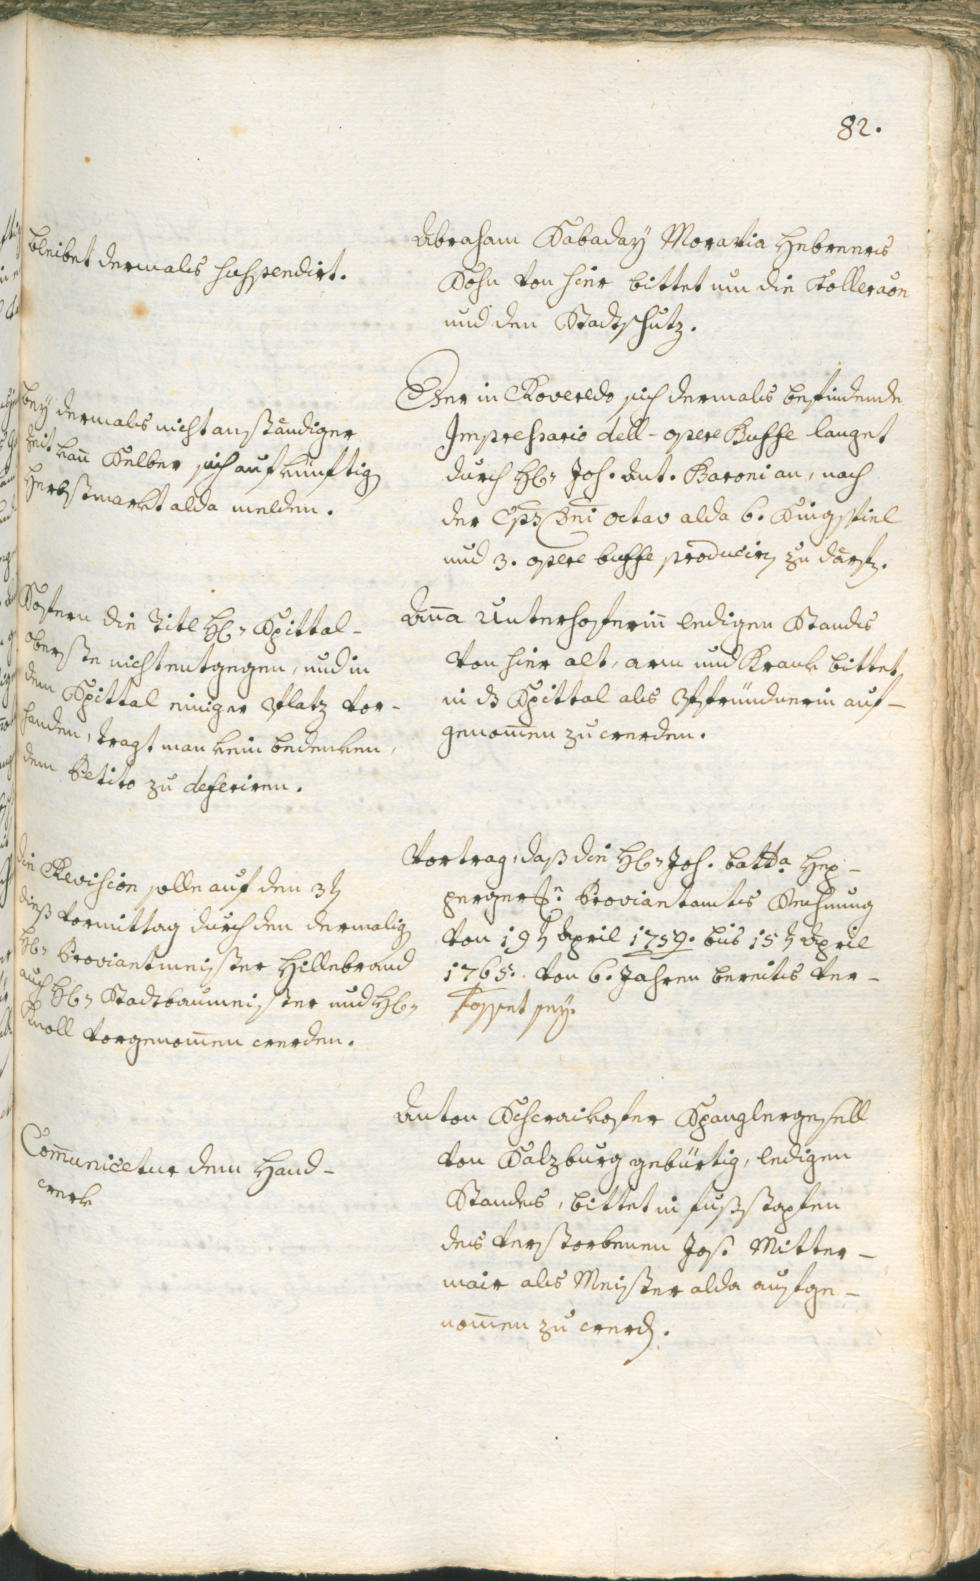 82.
bleibet dermals suspendirt.
Abraham Sabaday Moravia Hebreners
Sohn von hier bittet um die Tolleraõn
und den Stadtschutz.
bey dermals nicht anständiger
Zeit kañ Selber sich auf künftig
Herbstmarkt alda melden.
Der in Roveredo sich dermals befindende
Impressario dell- opere Buffe langet
durch H: Joh. Ant. Baroni an, nach
der Cps Dni octav alda 6. Singspiel
und 3. opere buffe producirn zu därfn.
Sofern die Titl H: Spittal-
oberste nicht entgegen, und in
dem Spittal einiger Platz vor-
handen, tragt man kein bedenken,
dem Petito zu deferiren.
Aña Unterhoferiñ ledigen Stands
von hier alt, arm und Krank bittet
in ds Spittal als Pfründnerin auf-
genom̃en zu werden.
die Revision solle auf den 3tn
dieß vormittag durch den dermalign
H: Proviantmeister Hillebrand
auch H: Stadtbaumeister und H:
Knoll vorgenom̃en werden.
Vortrag, daß die H: Joh. batta Hep-
pergers. Proviantamts Rechnung
von 19tn April 1759. bis 15tn April
1765. von 6. Jahren bereits ver-
fasset sey.
Com̃unicetur dem Hand-
werk
Anton Schwaikofer Spanglergesell
von Salzburg gebürtig, ledigen
Stands, bittet in fußstapfen
des verstorbenen Jos: Mitter-
mair als Meister alda aufge-
nom̃en zu werdn.